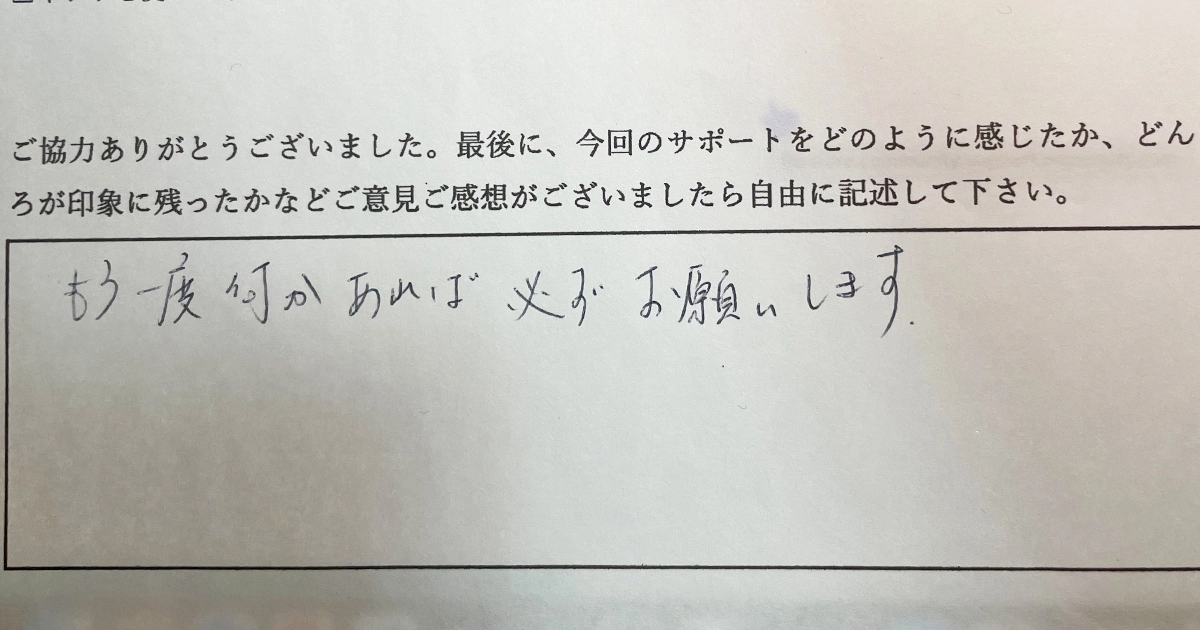 ご協力ありがとうございました。最後に、今回のサポートをどのように感じたか、どん
ろが印象に残ったかなどご意見ご感想がございましたら自由に記述して下さい。
もう一度何かあれば必ずお願いします.